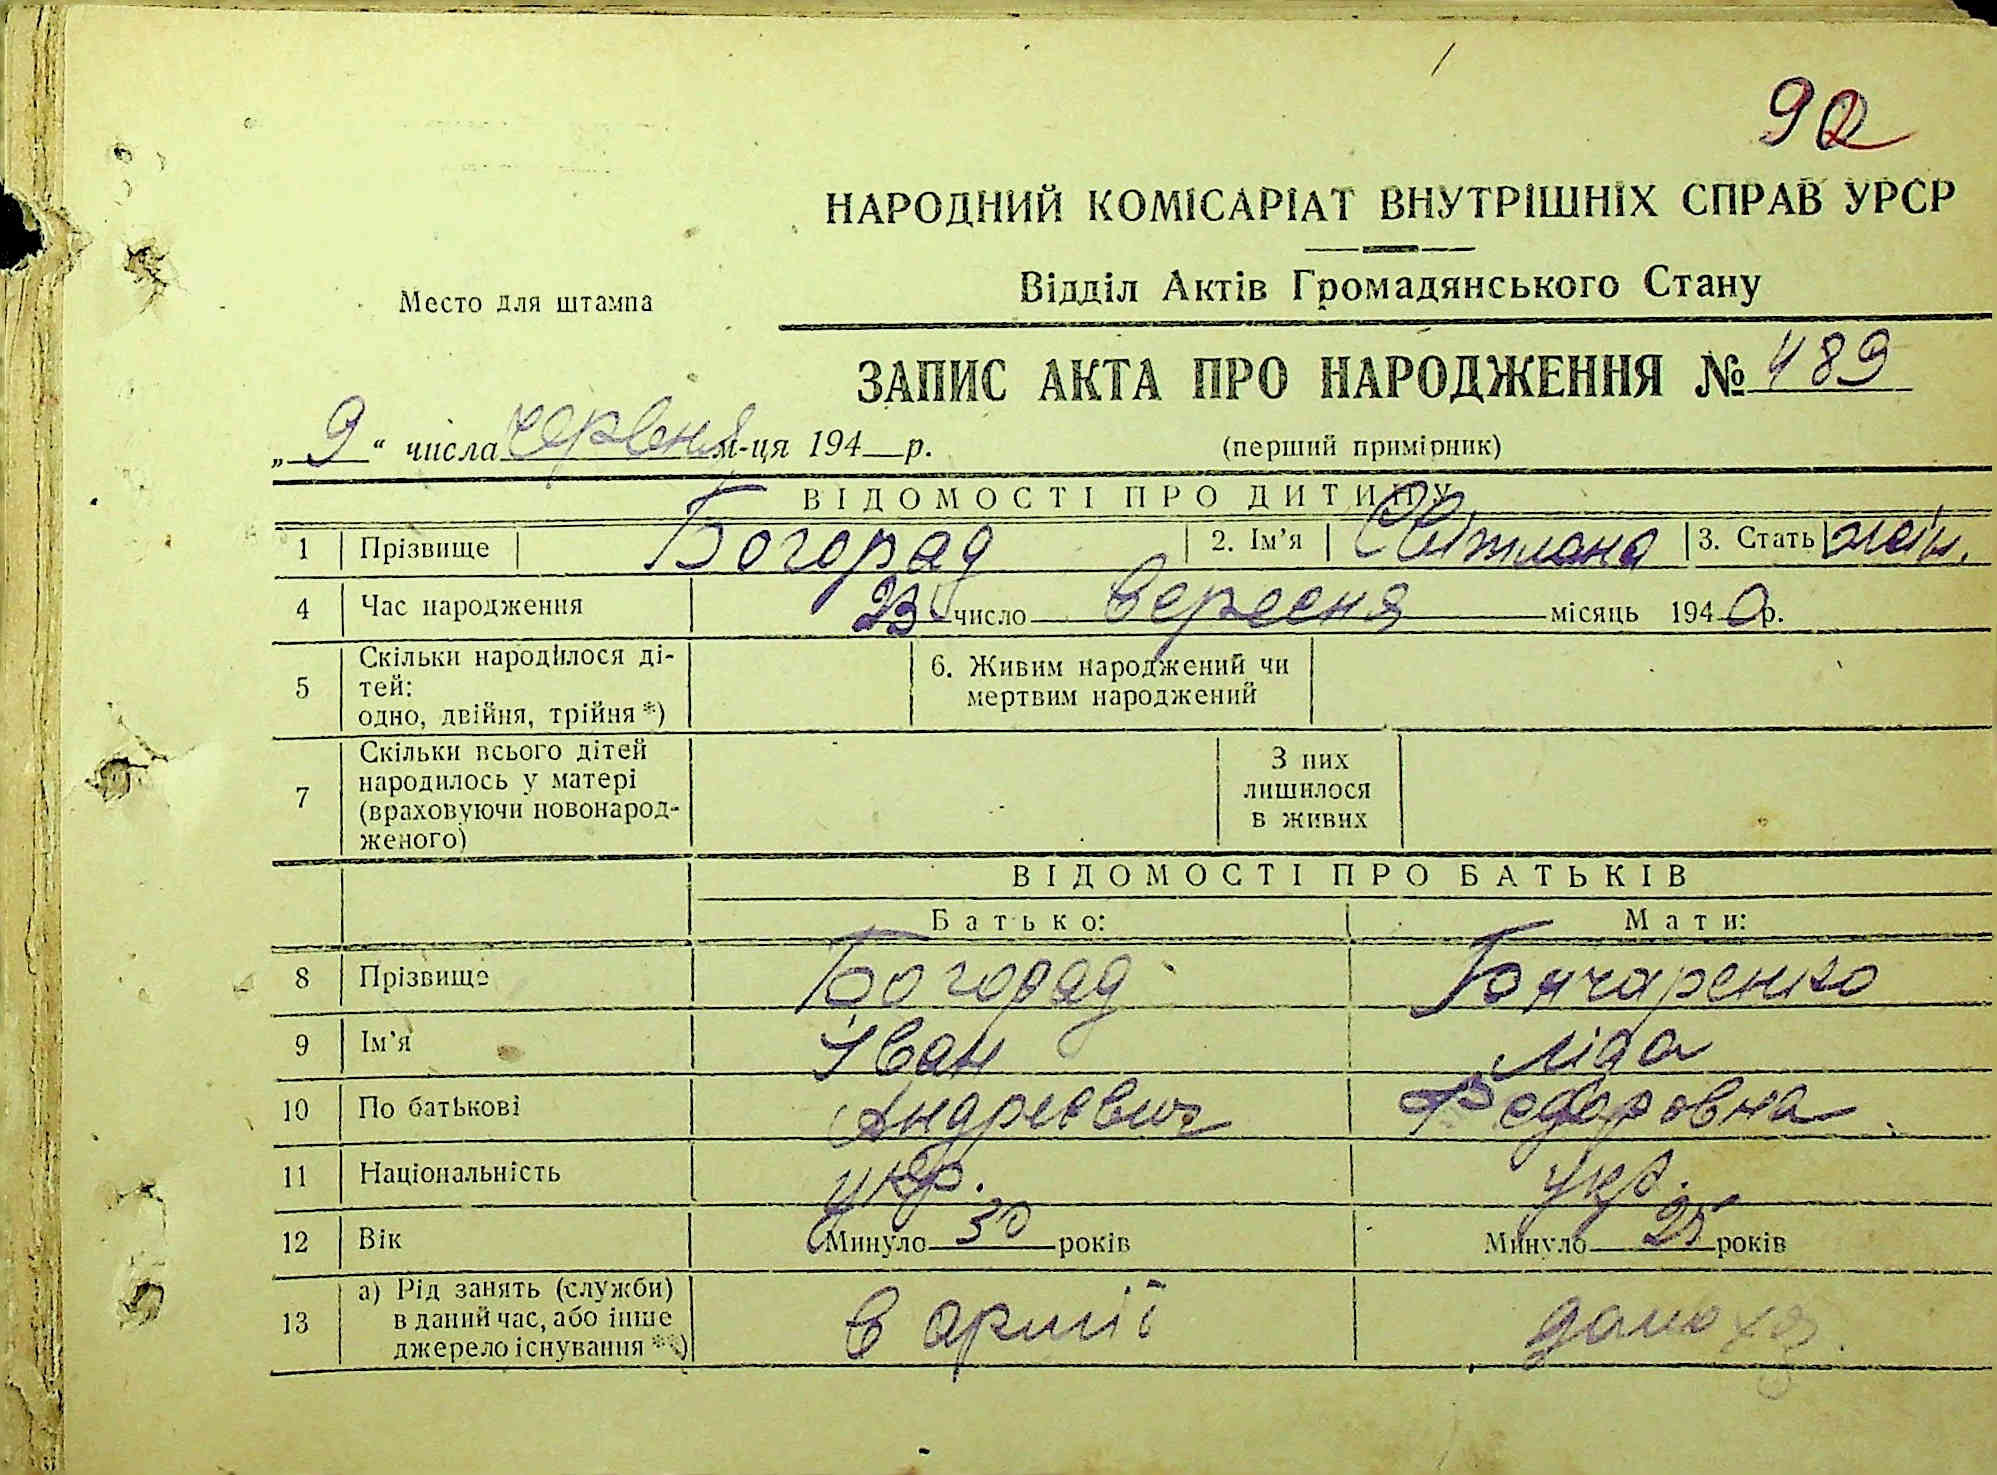 90
НАРОДНИЙ КОМІСАРІАТ ВНУТРІШНІХ СПРАВ УРСР
Відділ Актів Громадянського Стану
Место для штампа
ЗАПИС АКТА ПРО НАРОДЖЕННЯ № 489
„ 9 “ числа червня м-ця 194 р. (перший примірник)
ВІДОМОСТІ ПРО ДИТИНУ
1 Прізвище Богорад 2. Ім'я Світлана 3. Стать
4 Час народження 23 число вересня місяць 1940 р.
5 Скільки народилося ді-
тей:
одно, двійня, трійня *)
6. Живим народжений чи
мертвим народжений
7 Скільки всього дітей
народилось у матері
(враховуючи новонарод-
женого)
З них
лишилося
в живих
ВІДОМОСТІ ПРО БАТЬКІВ
Батько: Мати:
8 Прізвище Богорад Бончаренко
9 Ім'я Іван Ліда
10 По батькові Андреевич Федоровна
11 Національність укр. укр.
12 Вік Минуло 30 років Минуло 25 років
13 а) Рід занять (служби)
в даний час, або інше
джерело існування **)
в армії домохоз.